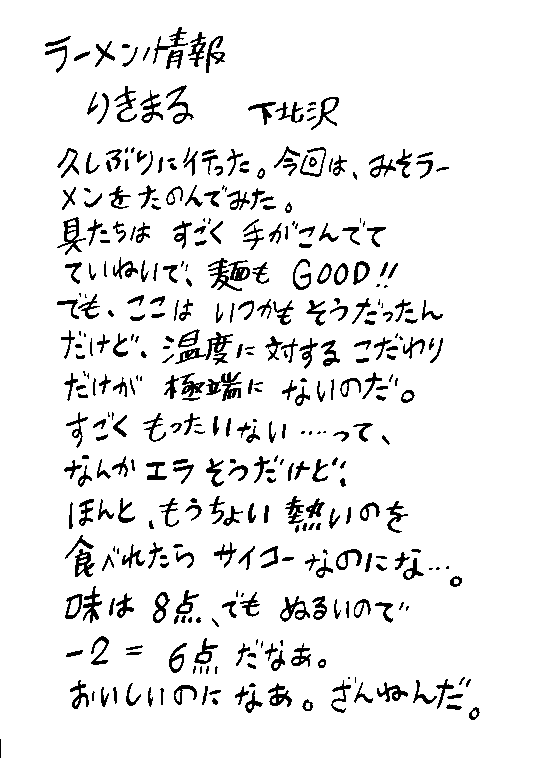 ラーメン情報
りきまる 下北沢
久しぶりに行った。今回は、みそラー
メンをたのんでみた。
具たちは すごく 手がこんでて
ていねいで、麺も GOOD!!
でも、ここは いつかも そうだったん
だけど、温度に対する こだわり
だけが 極端に ないのだ。
すごく もったいない…って、
なんか エラそうだけど、
ほんと、もうちょい 熱いのを
食べれたら サイコーなのにな…。
味は 8点、でも ぬるいので
-2 = 6点 だなあ。
おいしいのに なあ。ざんねんだ。